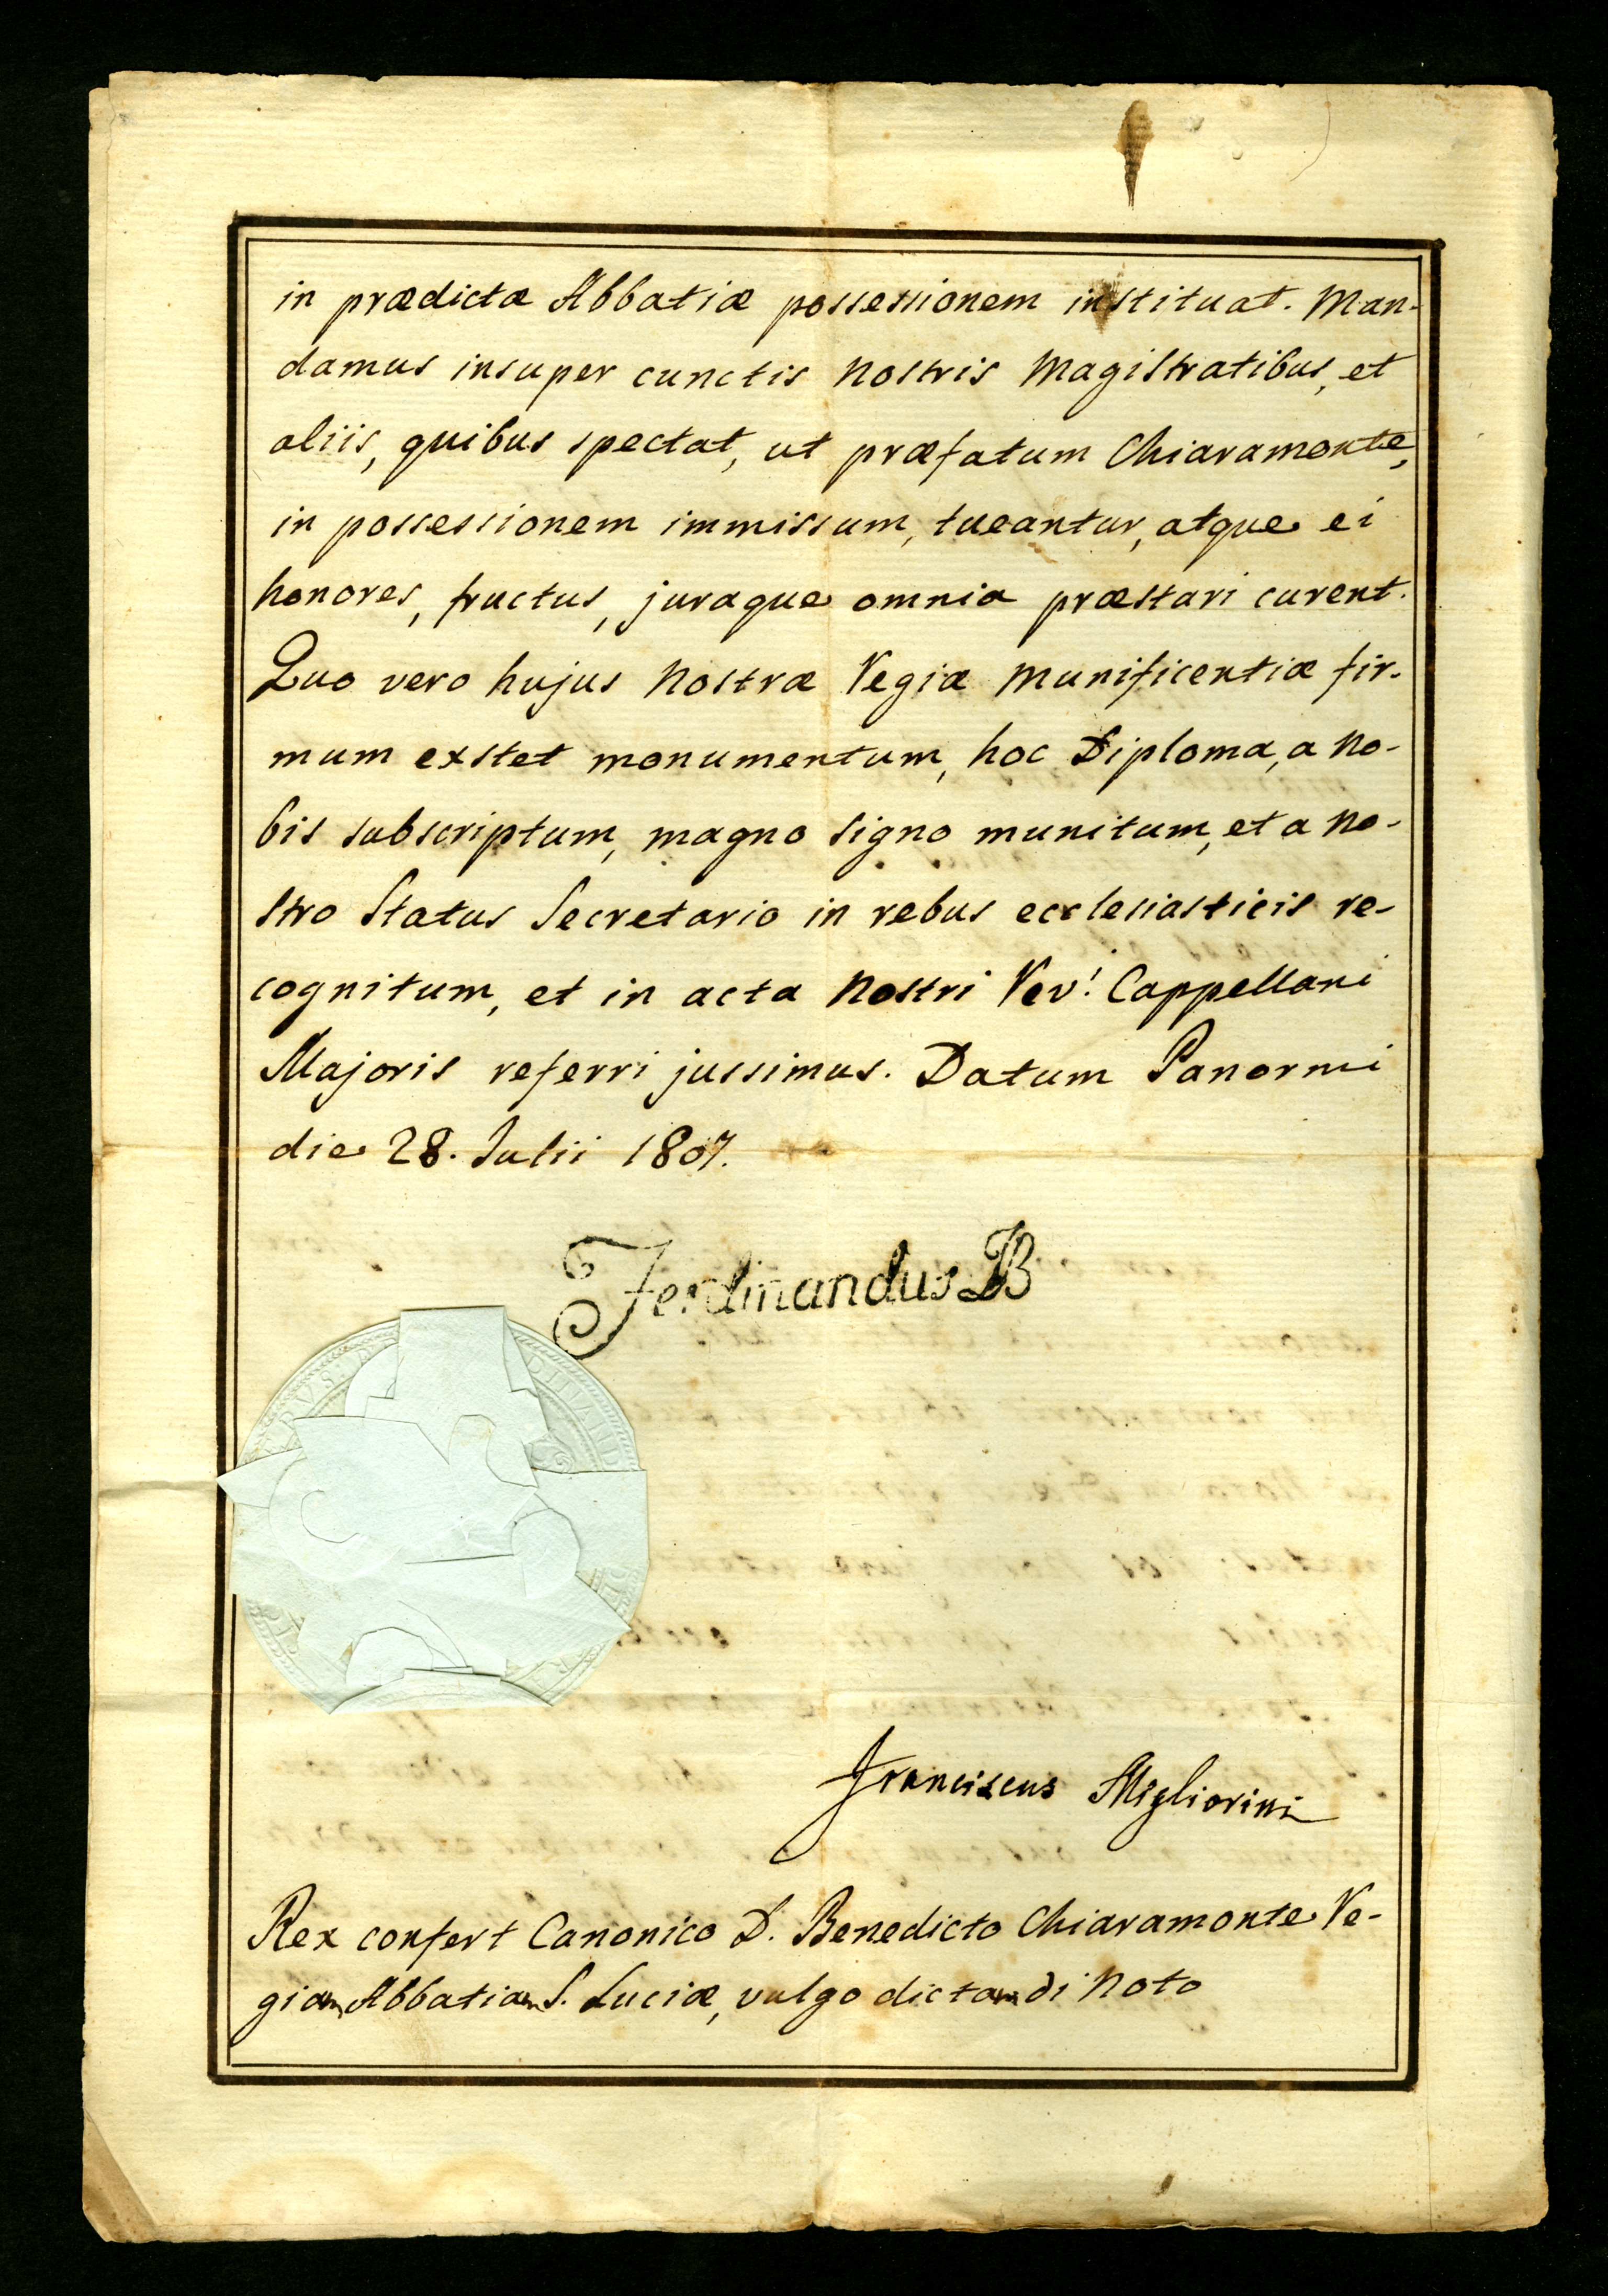 in prædictæ Abbatiæ possessionem instituat. Man-
damus insuper cunctis Nostris Magistratibus, et
aliis, quibus spectat, ut præfatum Chiaramonte,
in possessionem immissum, tueantur, atque ei
honores, fructus, juraque omnia præstari curent.
Quo vero hujus Nostræ Regiæ Munificentiæ fir-
mum exstet monumentum, hoc Diploma, a No-
bis subscriptum, magno signo munitum, et a No-
stro Status Secretario in rebus ecclesiasticis re-
cognitum, et in acta Nostri Rev.i Cappellani
Majoris referri jussimus. Datum Panormi
die 28. Julii 1807.
Ferdinandus B
Franciscus Migliorini
Rex confert Canonico D. Benedicto Chiaramonte Re-
giam Abbatiam S. Luciæ, vulgo dictam di Noto